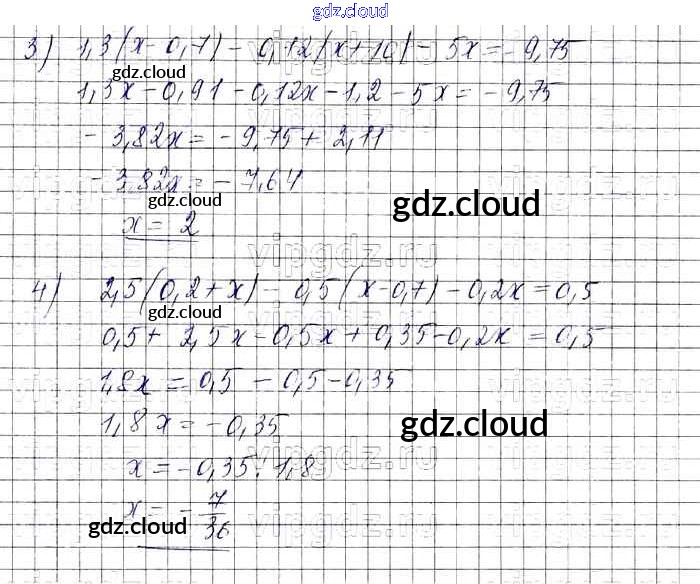 gdz.cloud
3) 1,3(x-0,7) - 0,12(x+10) - 5x = -9,75
gdz.cloud
1,3x - 0,91 - 0,12x - 1,2 - 5x = -9,75
-3,82x = -9,75 + 2,11
-3,82x = -7,64
gdz.cloud
gdz.cloud
x = 2
vipgdz.ru
4) 2,5(0,2+x) - 0,5(x-0,7) - 0,2x = 0,5
gdz.cloud
0,5 + 2,5x - 0,5x + 0,35 - 0,2x = 0,5
1,8x = 0,5 - 0,5 - 0,35
1,8x = -0,35
gdz.cloud
x = -0,35 : 1,8
x = - 7/36
gdz.cloud